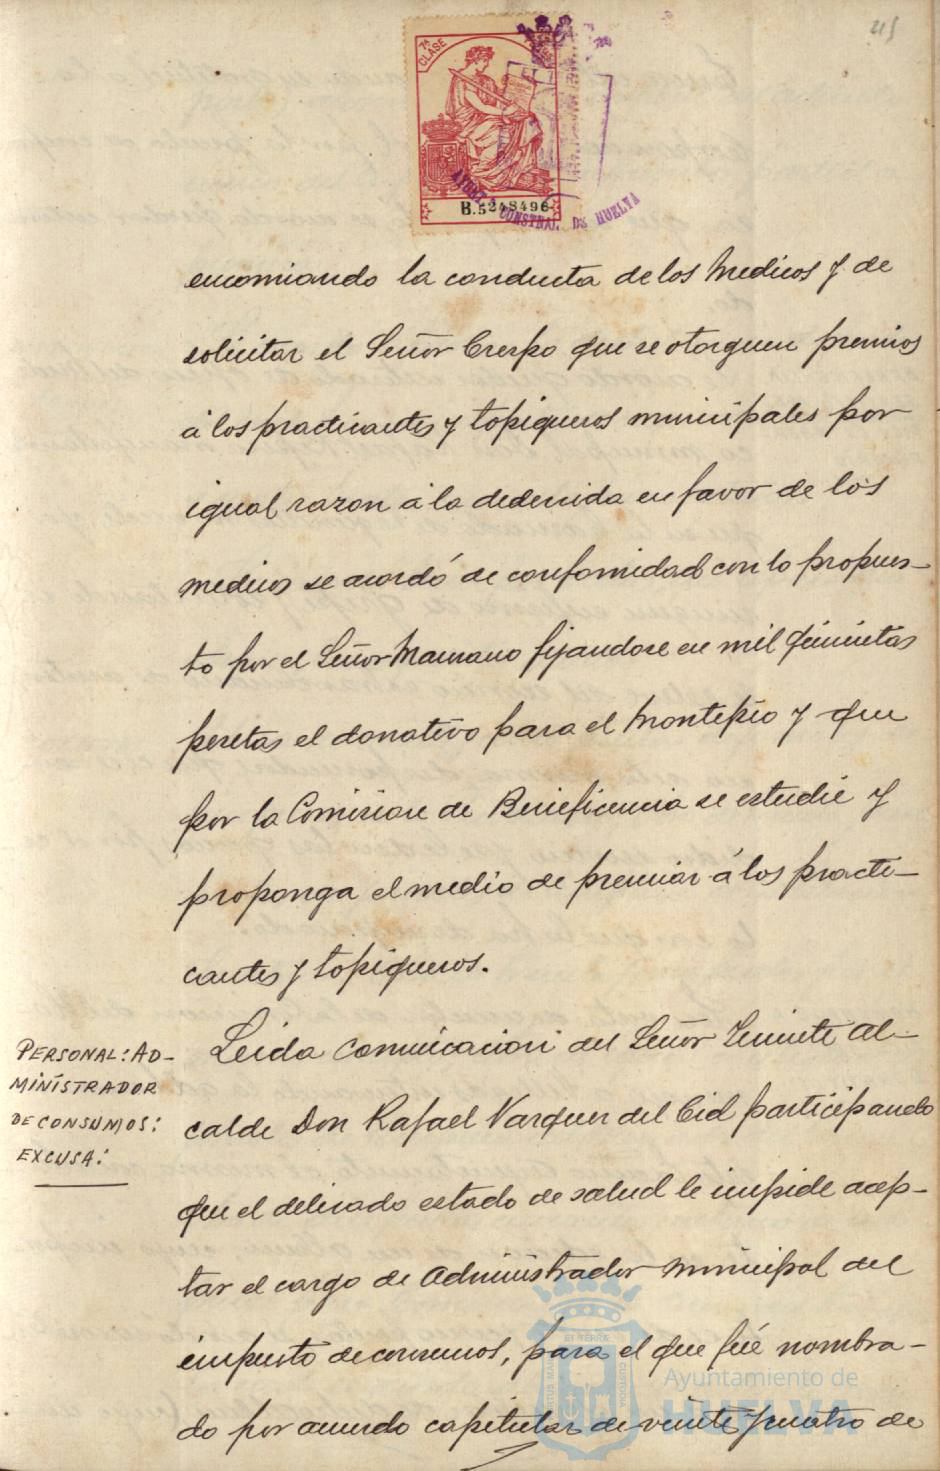 45
7ª CLASE
B.5248496
AYUNTº CONSTNAL DE HUELVA
encomiando la conducta de los Medicos y de
solicitar el Señor Crespo que se otorguen premios
á los practicantes y topiqueros municipales por
igual razon á la dedenida en favor de los
medicos se acordó de conformidad con lo propues-
to por el Señor Mamano fijandose en mil quinientas
pesetas el donativo para el Montepio y que
por la Comision de Beneficencia se estudie y
proponga el medio de premiar á los practi-
cantes y topiqueros.
PERSONAL: AD-
MINISTRADOR
DE CONSUMOS:
EXCUSA:
Leida comunicacion del Señor Teniente Al-
calde Don Rafael Vazquez del Cid participando
que el delicado estado de salud le impide acep-
tar el cargo de Administrador municipal del
impuesto de consumos, para el que fué nombra-
do por acuerdo capitular de veinte y cuatro de
Ayuntamiento de
HUELVA